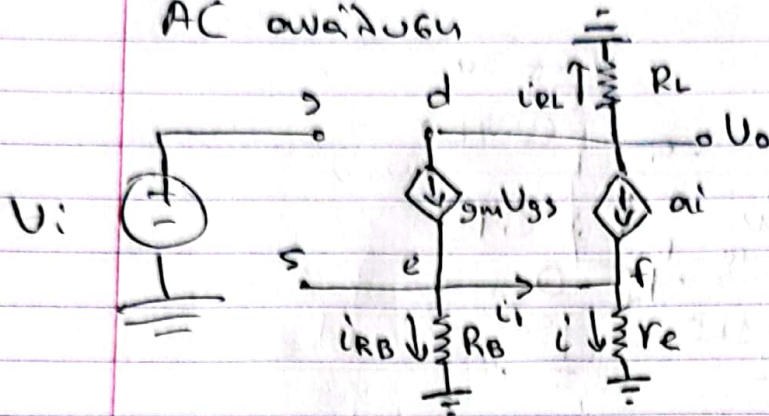 AC ανάλυση
g d iRL RL
Uo
Ui + - gmUgs ai
s e i1 f
iRB RB i re